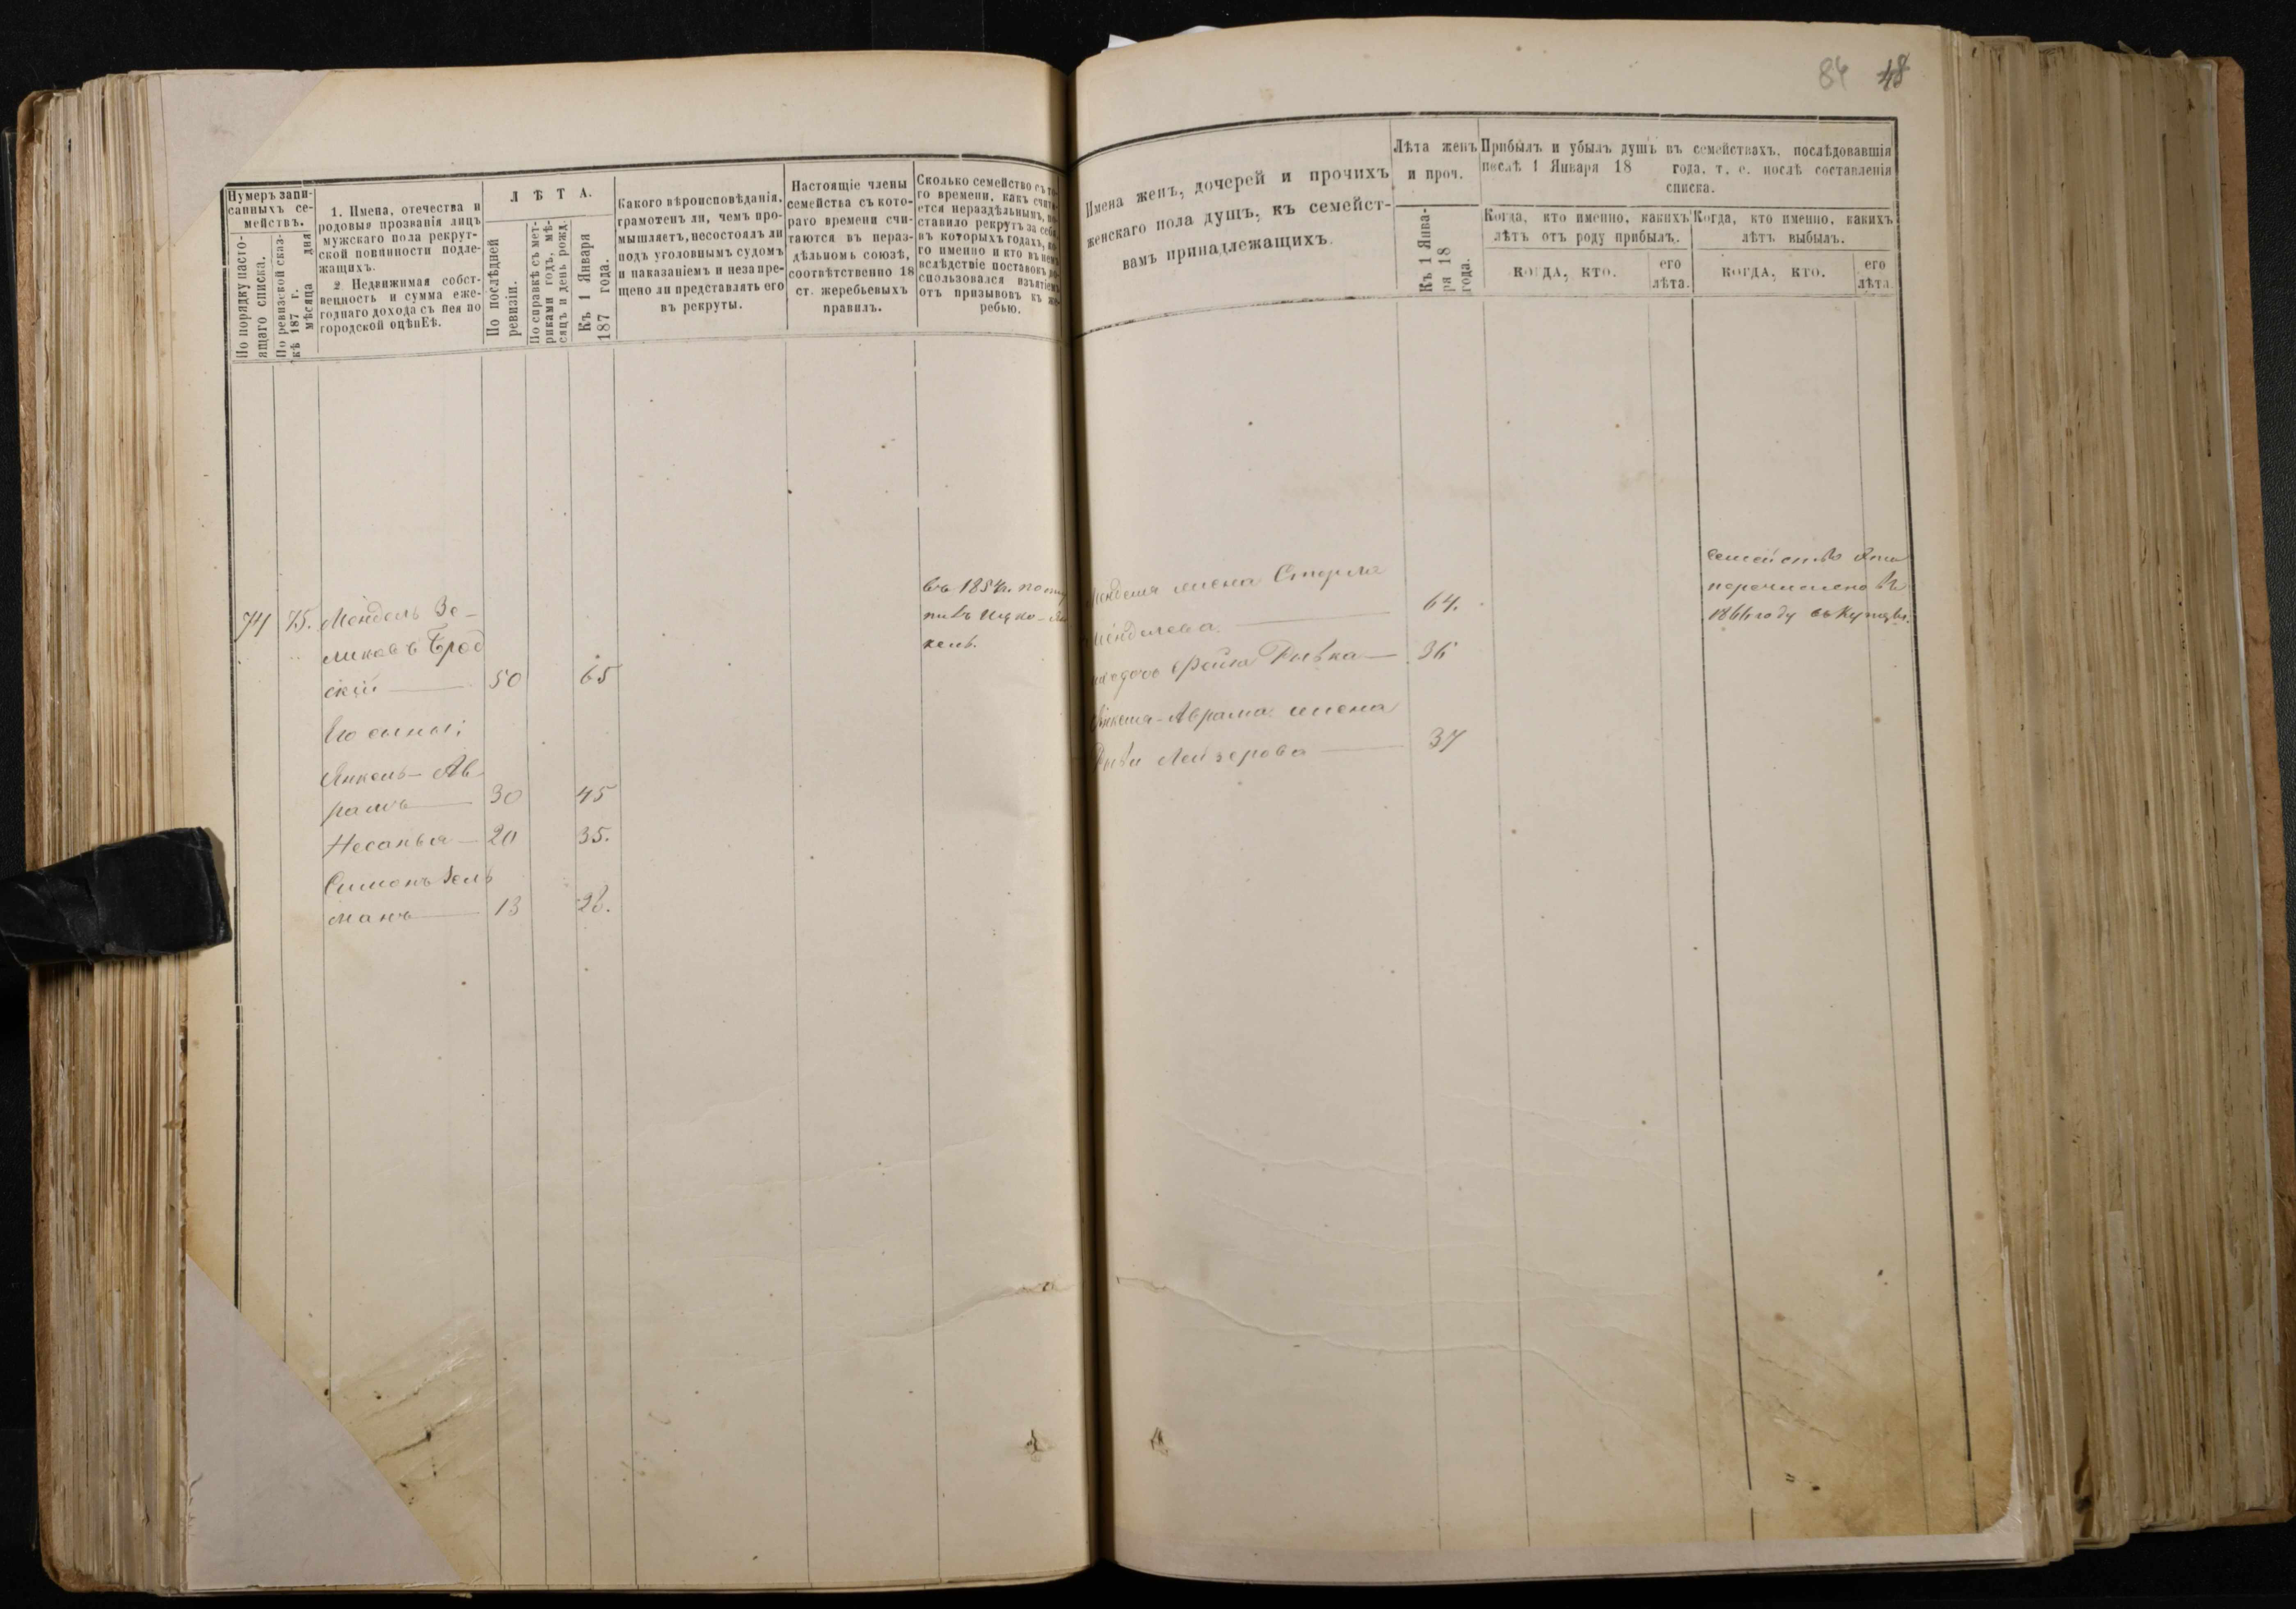 Нумеръ запи-
санныхъ се-
мействъ.
По порядку насто-
ящаго списка.
По ревизской сказ-
кѣ 187 г.
мѣсяца дня
1. Имена, отечества и
родовыя прозванія лицъ
мужскаго пола рекрут-
ской повинности подле-
жащихъ.
2 Недвижимая собст-
венность и сумма еже-
годнаго дохода съ нея по
городской оцѣнЕѣ.
Л Ѣ Т А.
По послѣдней
ревизіи.
По справкѣ съ мет-
риками годъ, мѣ-
сяцъ и день рожд.
Къ 1 Января
187 года.
Какого вѣроисповѣданія,
грамотенъ ли, чемъ про-
мышляетъ, несостоялъ ли
подъ уголовнымъ судомъ
и наказаніемъ и незапре-
щено ли представлять его
въ рекруты.
Настоящіе члены
семейства съ кото-
раго времени счи-
таются въ нераз-
дѣльномъ союзѣ,
соотвѣтственно 18
ст. жеребьевыхъ
правилъ.
Сколько семейство съ то-
го времени, какъ счита-
ется нераздѣльнымъ, по-
ставило рекрутъ за себя,
въ которыхъ годахъ, ко-
го именно и кто въ немъ
вслѣдствіе поставокъ во-
спользовался изъятіемъ
отъ призывовъ къ же-
ребью.
74 75. Мендель Зе-
ликовъ Брод
скій — 50 65
Его сыновья:
Янкель-Ав-
рамъ — 30 45
Несанья — 20 35.
Симонъ Зель
манъ — 13 28.
въ 1854 г. посту
пилъ Ицко-Ян
кель.
84 48
Имена женъ, дочерей и прочихъ
женскаго пола душъ, къ семейст-
вамъ принадлежащихъ.
Лѣта женъ
и проч.
Къ 1 Янва-
ря 18
года.
Прибылъ и убылъ душъ въ семействахъ, послѣдовавшія
послѣ 1 Января 18 года, т. е. послѣ составленія
списка.
Когда, кто именно, какихъ
лѣтъ от роду прибылъ.
КОГДА, КТО.
его
лѣта.
Когда, кто именно, какихъ
лѣтъ выбылъ.
КОГДА, КТО.
его
лѣта.
Менделя жена Стерля
Менделева — 64.
Фейга Рывка — 36
Янкеля-Аврама жена
Лейзерова — 37
семейство это
перечислено въ
1866 году въ купцы.